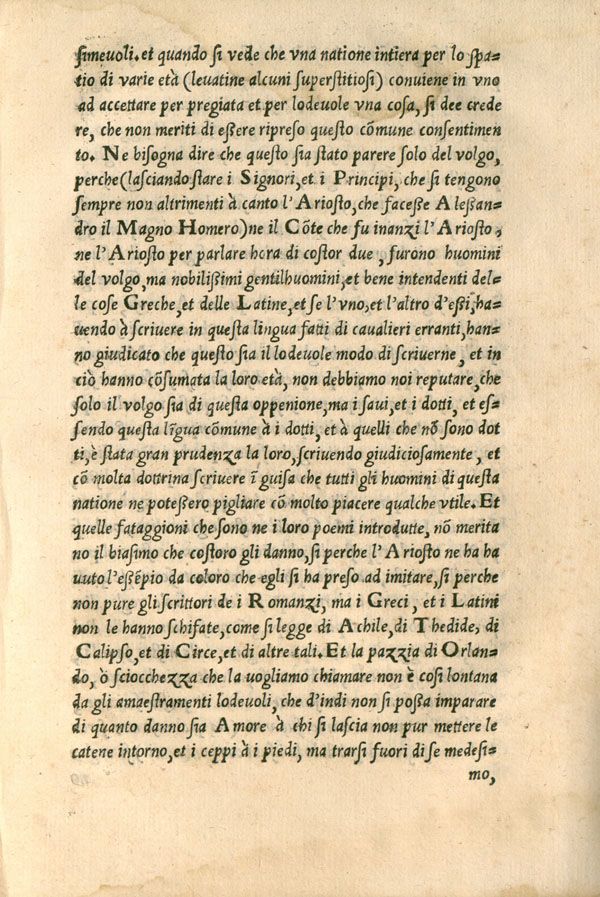 ſimeuoli. et quando ſi vede che vna natione intiera per lo ſpa=
tio di varie età (leuatine alcuni ſuperſtitioſi) conuiene in vno
ad accettare per pregiata et per lodeuole vna coſa, ſi dee crede
re, che non meriti di eſſere ripreſo queſto cōmune conſentimen
to. Ne biſogna dire che queſto ſia ſtato parere ſolo del volgo,
perche (laſciando ſtare i Signori, et i Principi, che ſi tengono
ſempre non altrimenti à canto l'Arioſto, che faceſſe Aleſſan=
dro il Magno Homero) ne il Cōte che fu inanzi l'Arioſto,
ne l'Arioſto per parlare hora di coſtor due, furono huomini
del volgo, ma nobiliſſimi gentilhuomini, et bene intendenti del=
le coſe Greche, et delle Latine, et ſe l'vno, et l'altro d'eſſi, ha=
uendo à ſcriuere in queſta lingua fatti di caualieri erranti, han=
no giudicato che queſto ſia il lodeuole modo di ſcriuerne, et in
ciò hanno cōſumata la loro età, non debbiamo noi reputare, che
ſolo il volgo ſia di queſta oppenione, ma i ſaui, et i dotti, et eſ=
ſendo queſta līgua cōmune à i dotti, et à quelli che nō ſono dot
ti, è ſtata gran prudenza la loro, ſcriuendo giudicioſamente, et
cō molta dottrina ſcriuere ī guiſa che tutti gli huomini di queſta
natione ne poteſſero pigliare cō molto piacere qualche vtile. Et
quelle fataggioni che ſono ne i loro poemi introdutte, nō merita
no il biaſimo che coſtoro gli danno, ſi perche l'Arioſto ne ha ha
uuto l'eſſēpio da coloro che egli ſi ha preſo ad imitare, ſi perche
non pure gli ſcrittori de i Romanzi, ma i Greci, et i Latini
non le hanno ſchifate, come ſi legge di Achile, di Thedide, di
Calipſo, et di Circe, et di altre tali. Et la pazzia di Orlan=
do, ò ſciocchezza che la uogliamo chiamare non è coſi lontana
da gli amaeſtramenti lodeuoli, che d'indi non ſi poſſa imparare
di quanto danno ſia Amore à chi ſi laſcia non pur mettere le
catene intorno, et i ceppi à i piedi, ma trarſi fuori di ſe medeſi=
mo,